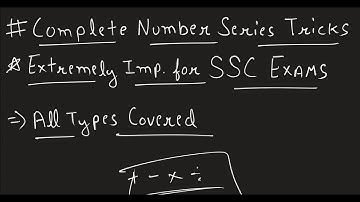 # Complete Number Series Tricks
* Extremely Imp. for SSC Exams
⇒ All Types Covered
+ - × ÷